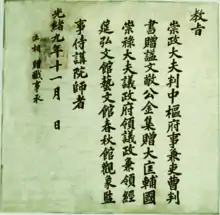 教旨
崇政大夫判中樞府事兼吏曹判
書贈諡文敬公金集贈大匡輔國
崇祿大夫議政府領議政兼領經
筵弘文館藝文館春秋館觀象監
事侍講院師者
光緒九年十一月 日